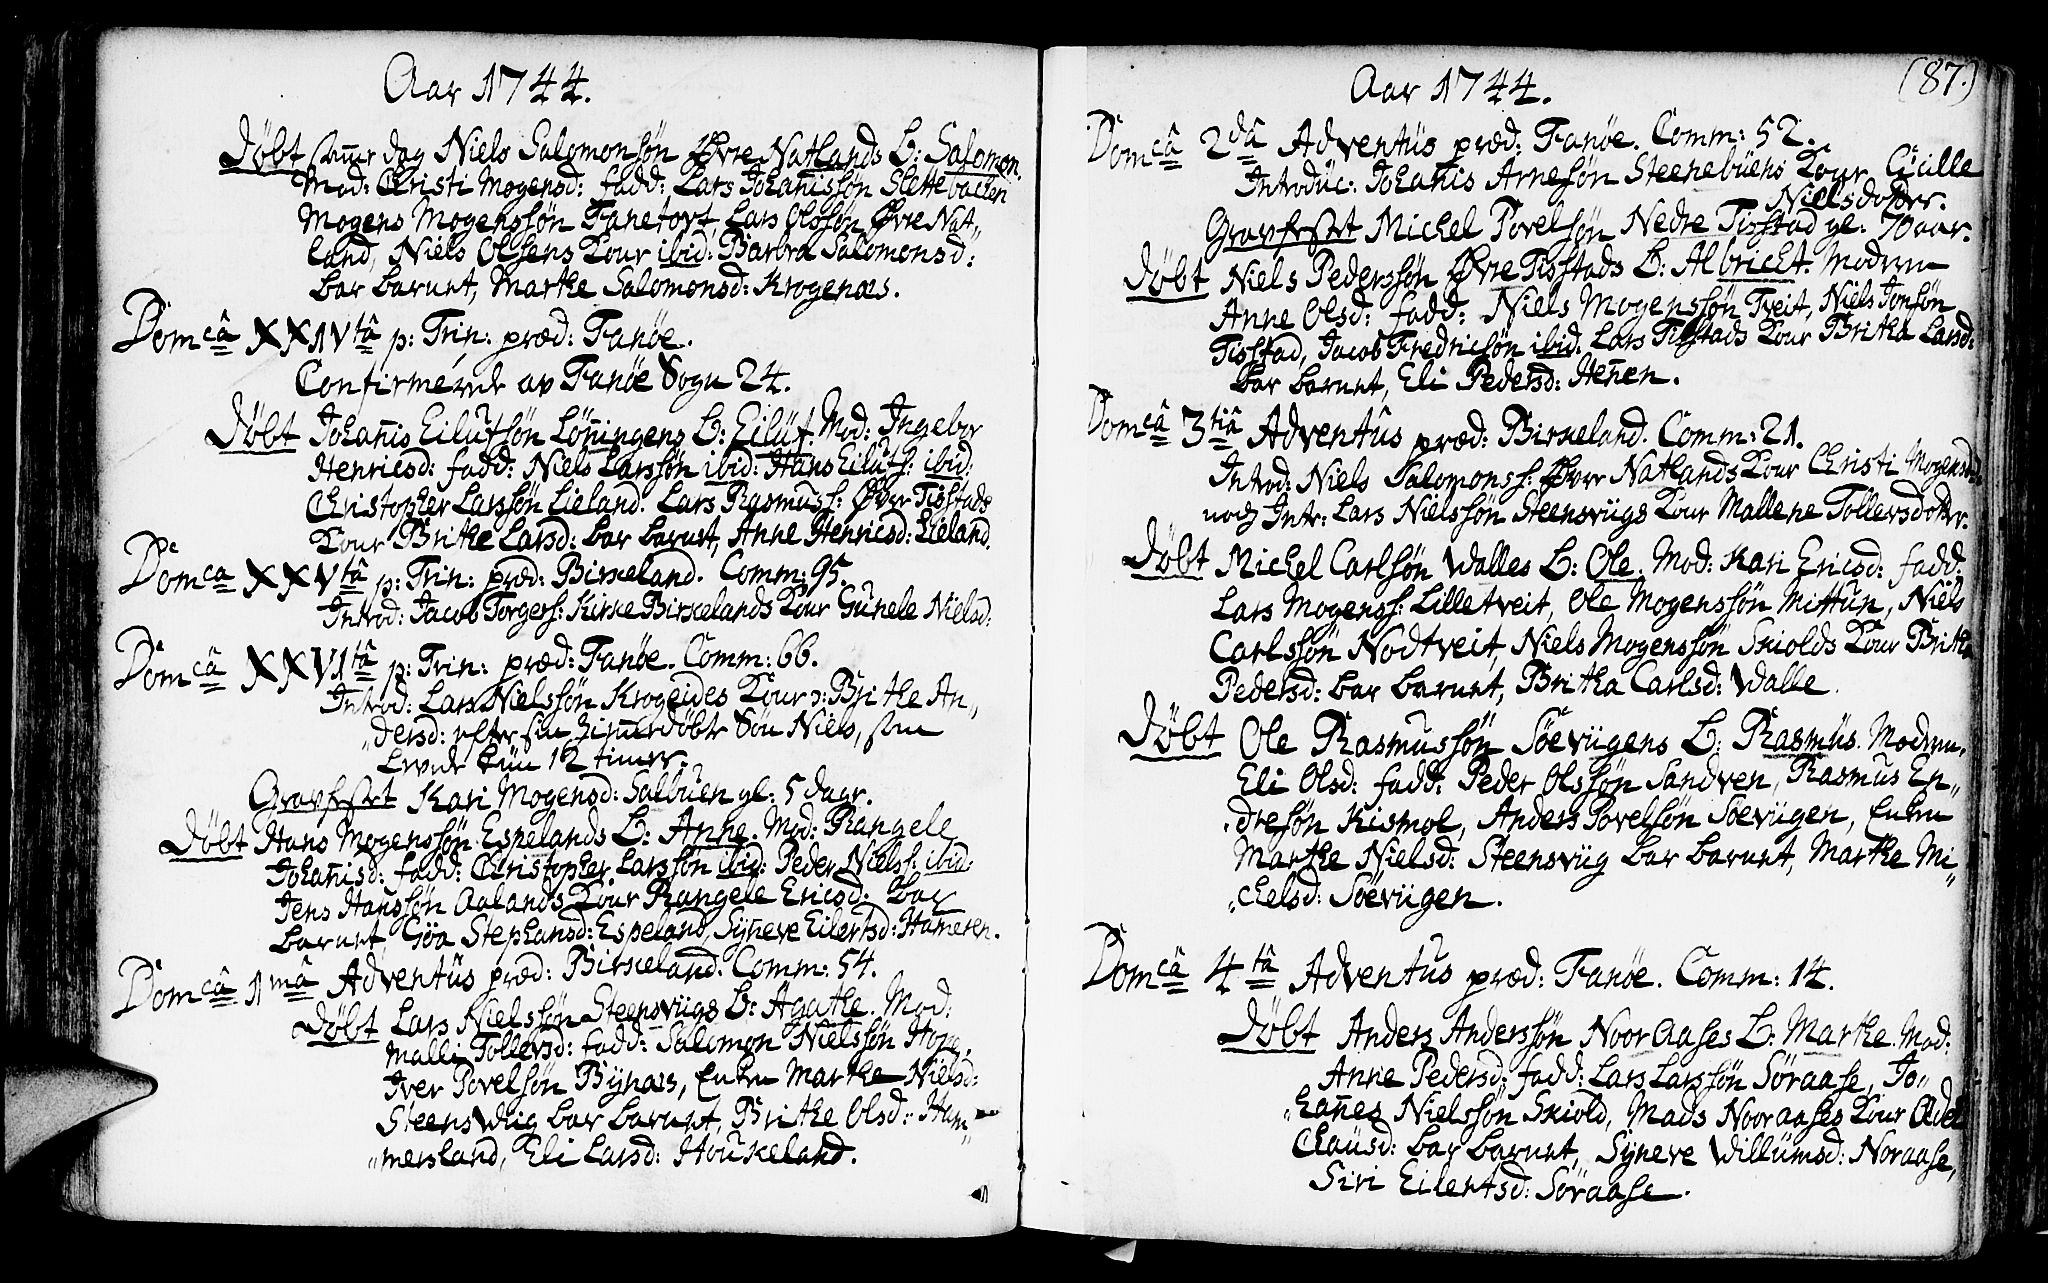 Aar 1744.
Døbt samme dag Niels Salomonsøn Øvre Natlands B: Salomon.
Mod: Christi Mogensd: fadd: Lars Johañissøn Slettebacken
Mogens Mogenssøn Fanetort, Lars Olssøn Øvre Nat„
land, Niels Olsens Kour ibid: Barbra Salomonsd:
bar barnet, Marthe Salomonsd: Krogenæs.
Domcâ XXIVtâ p: Trin: præd: Fanöe.
Confirmerede av Fanöe Sogn 24.
Døbt Johañis Eilufsøn Löñingens B: Eiluf. Mod: Ingebor
Henricsd: fadd: Niels Larssøn ibid: Hans Eilufs: ibid:
Christopher Larssøn Lieland. Lars Rasmuss: Øvre Tisstads
Kour Brithe Larsd: bar barnet, Anne Henricsd: Lieland.
Domca XXVtâ p: Trin: præd: Birkeland. Comm: 95.
Introd: Jacob Torgers: Kirke Birkelands Kour Guñele Nielsd:
Domcâ XXVItâ p: Trin: præd: Fanöe. Comm: 66.
Introd: Lars Nielssøn Krogeides Kour Brithe An„
„dersd: efter sin hiemmedøbte Søn Niels, som
levede kun 12 timer.
Gravfestet Kari Mogensd: Salbuen gl: 5 dage.
Døbt Hans Mogenssøn Espelands B: Anne. Mod: Rangele
Johañisd: fadd: Christopher Larssøn ibid: Peder Niels: ibid:
Jens Hanssøn Aalands Kour Rangele Ericsd: bar
barnet, Göa Stephansd: Espeland, Syñeve Eilertsd: Hameren.
Domcâ 1mâ Adventüs præd: Birkeland. Comm: 54.
Døbt Lars Nielssøn Steensviigs B: Agathe. Mod:
Malli Tollersd: fadd: Salomon Nielssøn Hope,
Iver Povelsøn Bÿnæs, Enken Marthe Nielsd:
Steensviig bar barnet, Brithe Olsd: Ham„
„mersland, Eli Larsd: Houkeland.
Aar 1744. (87.)
Domcâ 2dâ Adventüs præd: Fanöe. Comm: 52.
Introduc: Johañis Arnesøn Steenebuens Kour Cicille
Nielsdotter.
Gravfestet Michel Povelsøn Nedre Tisstad gl: 70 aar.
Døbt Niels Pederssøn Øvre Tisstads B: Albricht. Moderen
Anne Olsd: fadd: Niels Mogenssøn Tveit, Niels Jonsøn
Tisstad, Jacob Fredricsøn ibid: Lars Tisstads Kour Britha Larsd:
bar barnet, Eli Pedersd: Heñen.
Domcâ 3tiâ Adventüs præd: Birkeland. Comm: 21.
Introd: Niels Salomons: Øvre Natlands Kour Christi Mogensd:
noch Intr: Lars Nielssøn Steensviigs Kour Mallene Tollersdotter.
Døbt Michel Carlsøn Walles B: Ole. Mod: Kari Ericsd: fadd:
Lars Mogens: Lilletveit, Ole Mogenssøn Mittun, Niels
Carlssøn Nodtveit, Niels Mogenssøn Skiolds Kour Brithe
Pedersd: bar barnet, Britha Carlsd: Walle.
Døbt Ole Rasmussøn Söeviigens B: Rasmus. Moderen,
Eli Olsd: fadd: Peder Olssøn Sandven, Rasmus En„
„dresøn Kismol, Anders Povelsøn Söeviigen, Enken
Marthe Nielsd: Steensviig bar barnet, Marthe Mi„
„chelsd: Söeviigen.
Domcâ 4tâ Adventus præd: Fanöe. Comm: 14.
Døbt Anders Anderssøn Noor Aases B: Marthe. Mod:
Anne Pedersd: fadd: Lars Larssøn Søraase, Jo„
„hañes Nielssøn Skiold, Mads Nooraases Kour Adel
Clausd: bar barnet, Syneve Willumsd: Noraase,
Siri Eilertsd: Søraase.